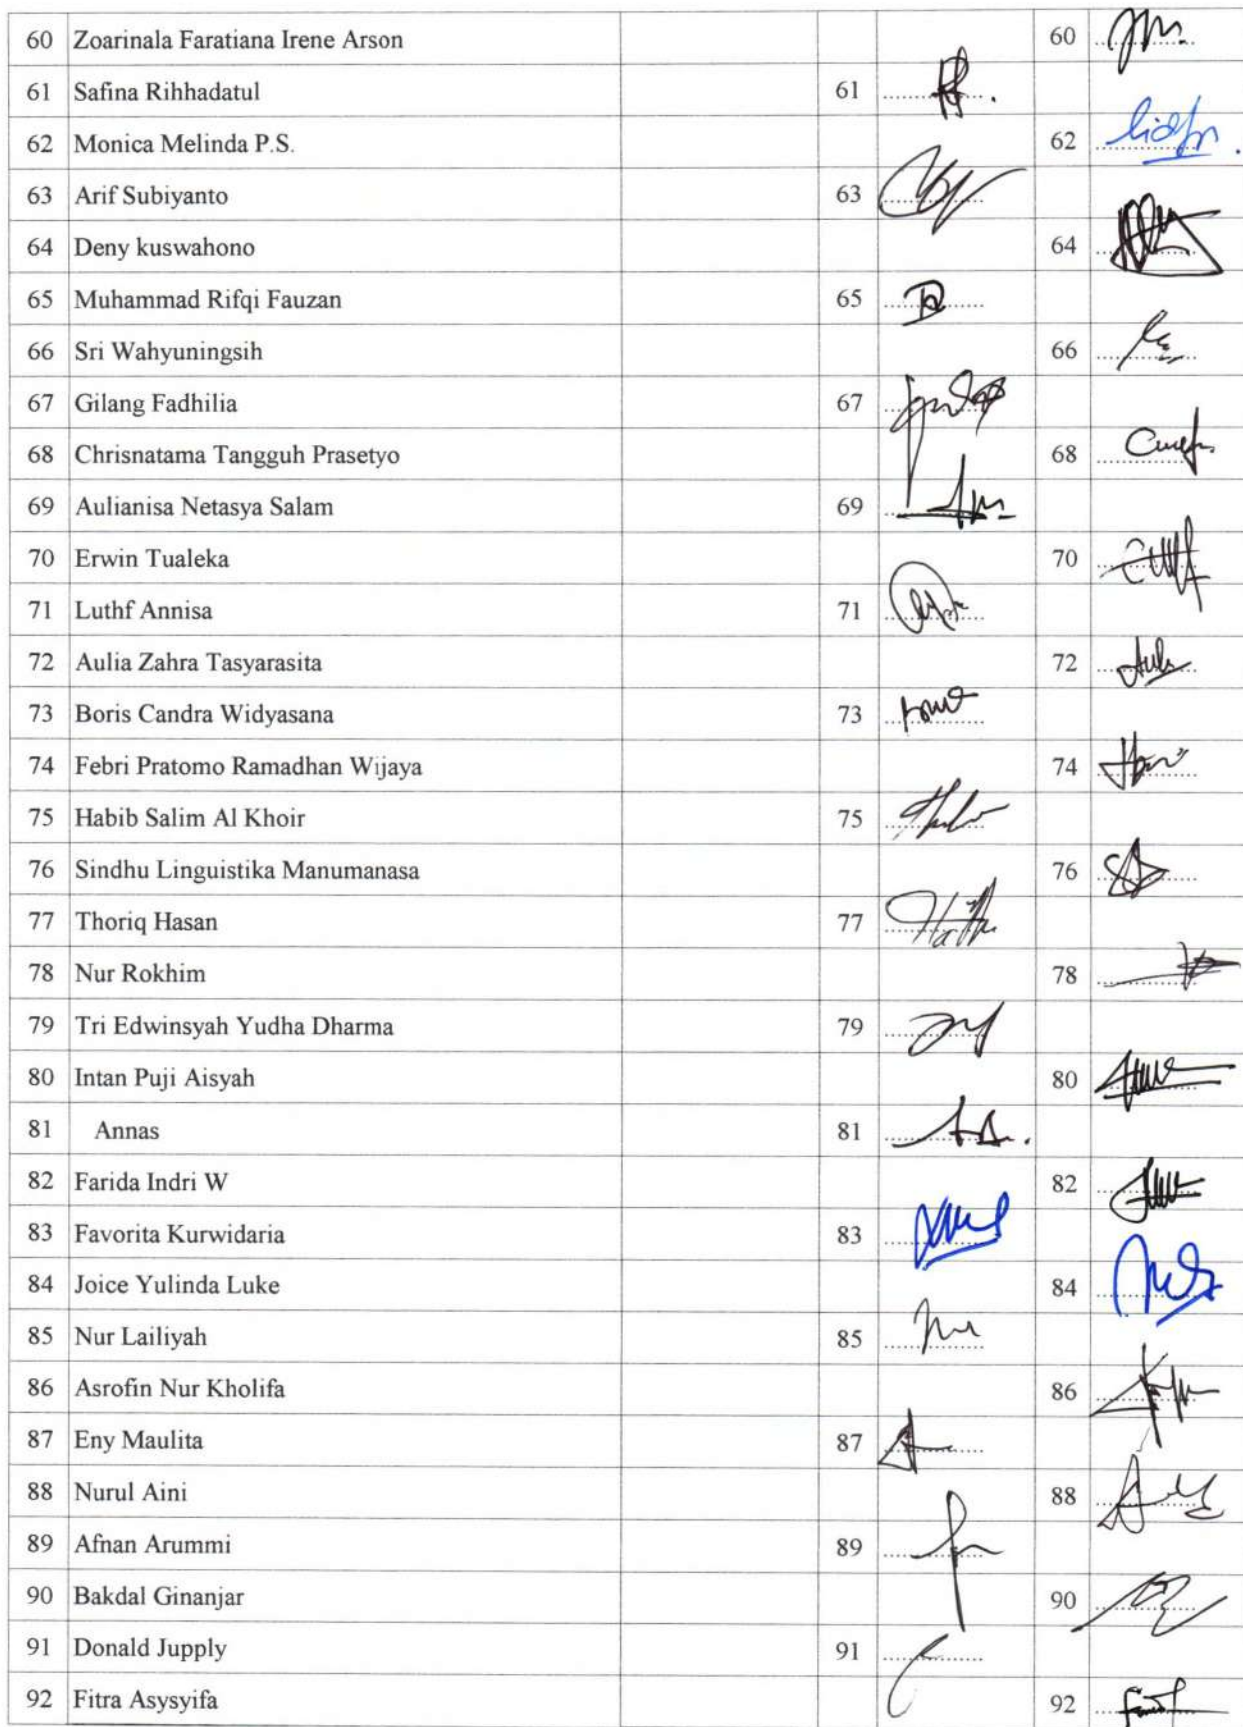 60 Zoarinala Faratiana Irene Arson 60
61 Safina Rihhadatul 61
62 Monica Melinda P.S. 62
63 Arif Subiyanto 63
64 Deny kuswahono 64
65 Muhammad Rifqi Fauzan 65
66 Sri Wahyuningsih 66
67 Gilang Fadhilia 67
68 Chrisnatama Tangguh Prasetyo 68
69 Aulianisa Netasya Salam 69
70 Erwin Tualeka 70
71 Luthf Annisa 71
72 Aulia Zahra Tasyarasita 72
73 Boris Candra Widyasana 73
74 Febri Pratomo Ramadhan Wijaya 74
75 Habib Salim Al Khoir 75
76 Sindhu Linguistika Manumanasa 76
77 Thoriq Hasan 77
78 Nur Rokhim 78
79 Tri Edwinsyah Yudha Dharma 79
80 Intan Puji Aisyah 80
81 Annas 81
82 Farida Indri W 82
83 Favorita Kurwidaria 83
84 Joice Yulinda Luke 84
85 Nur Lailiyah 85
86 Asrofin Nur Kholifa 86
87 Eny Maulita 87
88 Nurul Aini 88
89 Afnan Arummi 89
90 Bakdal Ginanjar 90
91 Donald Jupply 91
92 Fitra Asysyifa 92